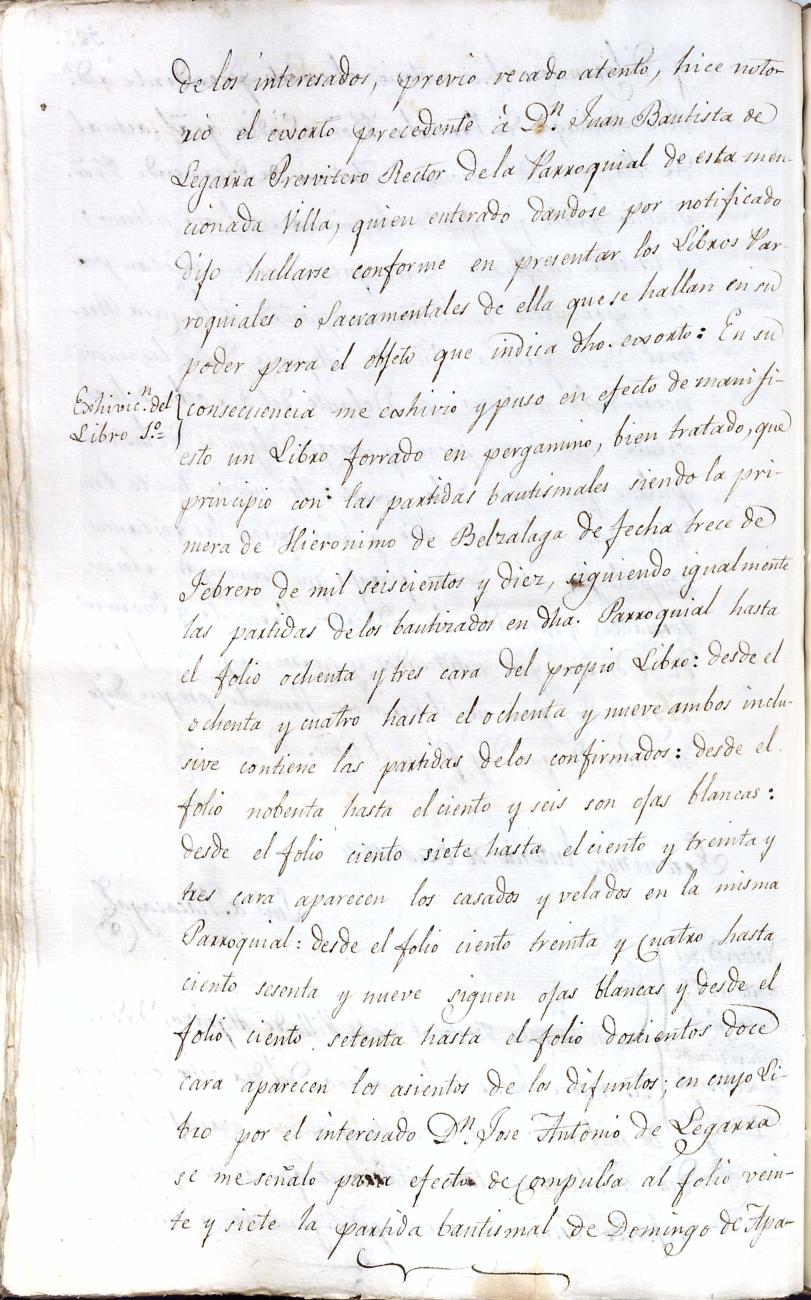 de los interesados, previo recado atento, hice noto-
rio el exorto precedente à D.n Juan Bautista de
Legarra Presvitero Rector dela Parroquial de esta men-
cionada Villa, quien enterado dandose por notificado
dijo hallarse conforme en presentar los Libros Par-
roquiales ó Sacramentales de ella que se hallan en su
poder para el objeto que indica dho. exorto: En su
Exhivic.n del
Libro 1.º =
consecuencia me exhivio y puso en efecto de manifi-
esto un Libro forrado en pergamino, bien tratado, que
principio con las partidas bautismales siendo la pri-
mera de Hieronimo de Belzalaga de fecha trece de
Febrero de mil seiscientos y diez, siguiendo igualmente
las partidas delos bautizados en dha. Parroquial hasta
el folio ochenta y tres cara del propio Libro: desde el
ochenta y cuatro hasta el ochenta y nueve ambos inclu-
sive contiene las partidas delos confirmados: desde el
folio nobenta hasta el ciento y seis son ojas blancas:
desde el folio ciento siete hasta el ciento y treinta y
tres cara aparecen los casados y velados en la misma
Parroquial: desde el folio ciento treinta y cuatro hasta
ciento sesenta y nueve siguen ojas blancas y desde el
folio ciento setenta hasta el folio doscientos doce
cara aparecen los asientos de los difuntos; en cuyo Li-
bro por el interesado D.n Jose Antonio de Legarra
se me señalo para efecto de compulsa al folio vein-
te y siete la partida bautismal de Domingo de Apa-